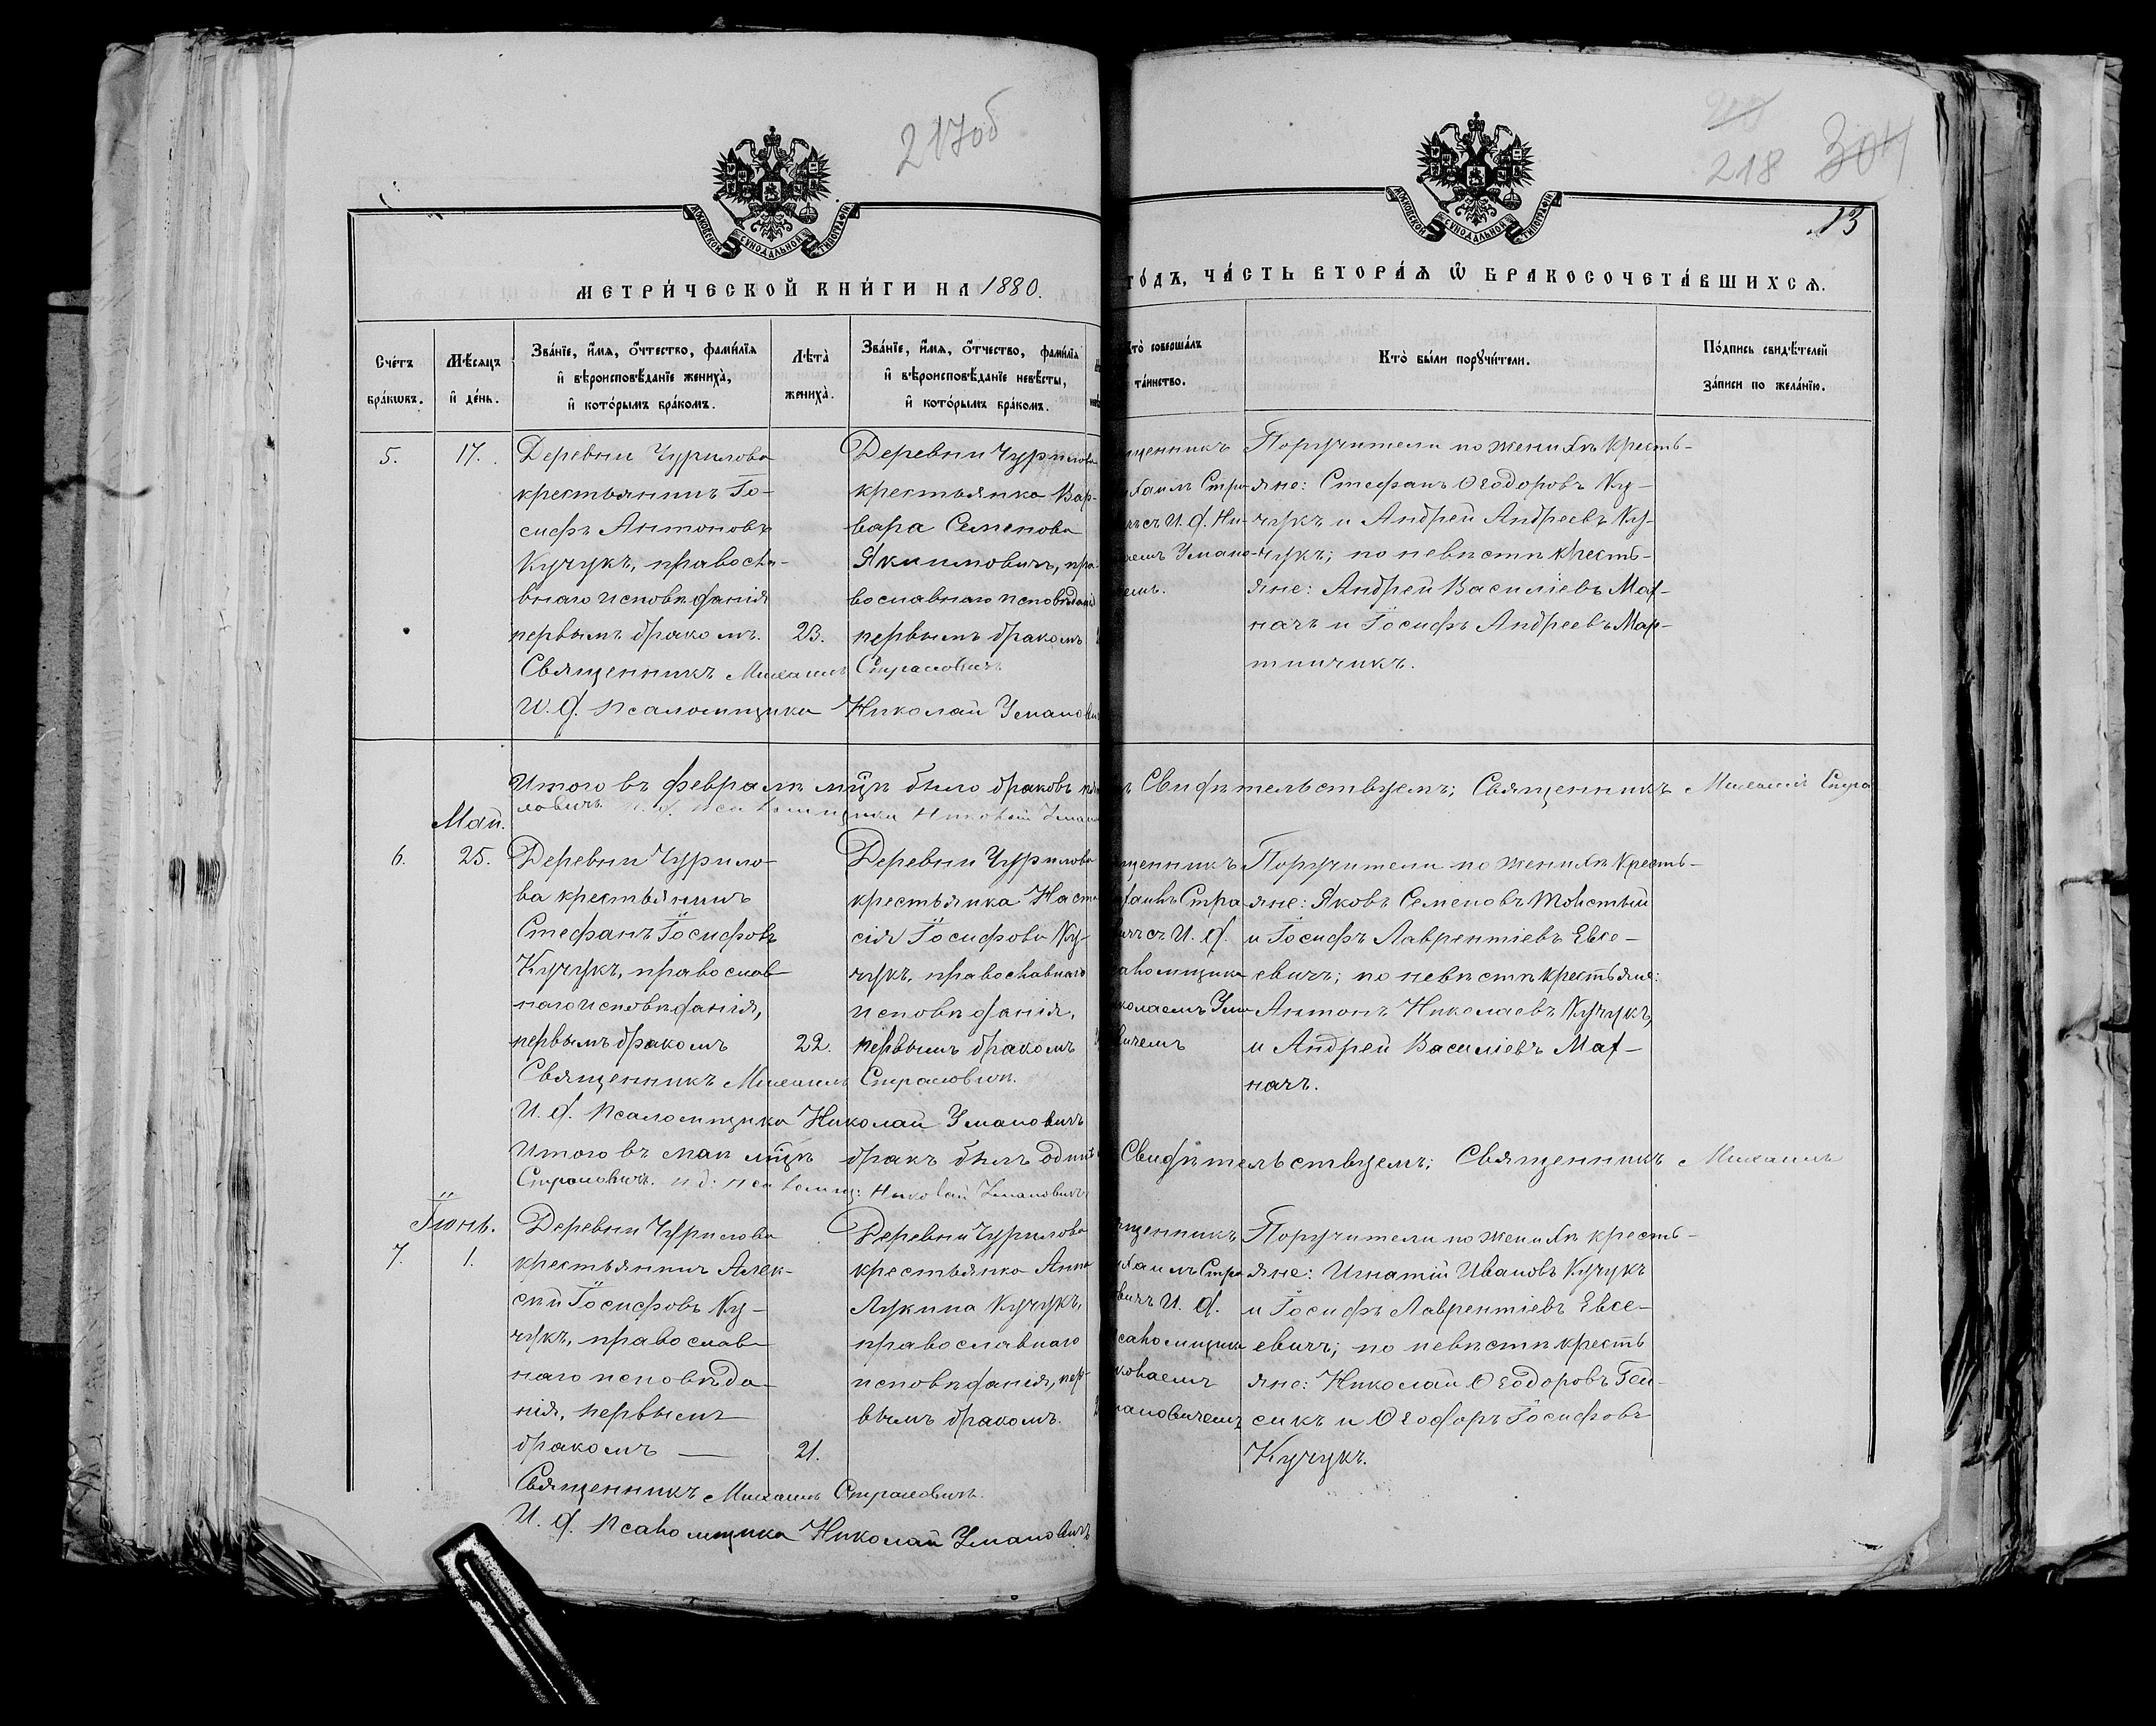 217об
218
304
13
МОСКОВСКОЙ СѴНОДАЛЬНОЙ ТИПОГРАФІИ
МОСКОВСКОЙ СѴНОДАЛЬНОЙ ТИПОГРАФІИ
МЕТРИ́ЧЕСКОЙ КНИ́ГИ НА 1880.
ГО́ДЪ, ЧА́СТЬ ВТОРА́Ѧ Ѡ҆ БРАКОСОЧЕТА́ВШИХСѦ.
Сче́тъ бра́кѡвъ.
Мѣ́сяцъ и҆ де́нь.
Зва́нїе, и҆́мя, о҆́тчество, фами́лїя и҆ вѣроисповѣ́данїе жениха̀, и҆ кото́рымъ бра́комъ.
Лѣта̀ жениха̀.
Зва́нїе, и҆́мя, о҆́тчество, фами́лїя и҆ вѣроисповѣ́данїе невѣ́сты, и҆ кото́рымъ бра́комъ.
Кто̀ соверша́лъ та́инство.
Кто̀ бы́ли порꙋчи́тели.
По́дпись свидѣ́телей за́писи по жела́нїю.
5.
17.
Деревни Чурилова
крестьянинъ Іо-
сифъ Антоновъ
Кучукъ, правосла-
внаго исповѣданія
первымъ бракомъ.
23.
Деревни Чурилова
крестьянка Вар-
вара Семенова
Якимовичъ, пра-
вославнаго исповѣданія
первымъ бракомъ
щенникъ
хаилъ Стра-
чъ съ И. д.
лаемъ Умано-
чемъ.
Поручители по женихѣ кресть-
яне: Стефанъ Ѳеодоровъ Ку-
чукъ и Андрей Андреевъ Ку-
чукъ; по невѣстѣ кресть-
яне: Андрей Василіевъ Мах-
начъ и Іосифъ Андреевъ Мар-
тинчикъ.
Священникъ Михаилъ Страловичъ
И. д. псаломщика Николай Умановичъ
Итого въ февралѣ м͠цѣ было браковъ
Свидѣтельствуемъ; Священникъ Михаилъ Стра
ловичъ И. д. псаломщика Николай
Май.
6.
25.
Деревни Чурило-
ва крестьянинъ
Стефанъ Іосифовъ
Кучукъ, православ-
наго исповѣданія,
первымъ бракомъ
22.
Деревни Чурилова
крестьянка Наста
сія Іосифова Ку-
чукъ, православнаго
исповѣданія,
первымъ бракомъ
щенникъ
хаилъ Стра
чъ съ И. д.
аломщика
колаемъ Ума
вичемъ
Поручители по женихѣ кресть-
яне: Яковъ Семеновъ Толстый
и Іосифъ Лаврентіевъ Евсе-
евичъ; по невѣстѣ крестьяне:
Антонъ Николаевъ Кучукъ,
и Андрей Василіевъ Мах-
начъ.
Священникъ Михаилъ Страловичъ.
И. д. псаломщика Николай Умановичъ
Итого въ маѣ м͠цѣ бракъ былъ одинъ
Свидѣтельствуемъ; Священникъ Михаилъ
Страловичъ. и д: псаломщ: Николай Умановичъ
Іюнь.
7.
1.
Деревни Чурилова
крестьянинъ Алек-
сѣй Іосифовъ Ку-
чукъ, православ-
наго исповѣда-
нія, первымъ
бракомъ —
21.
Деревни Чурилова
крестьянка Анна
Лукина Кучукъ,
православнаго
исповѣданія, пер-
вымъ бракомъ.
щенникъ
хаилъ Стра
вичъ И. д.
псаломщика
колаемъ
мановичемъ
Поручители по женихѣ кресть-
яне: Игнатій Ивановъ Кучукъ
и Іосифъ Лаврентіевъ Евсе-
евичъ; по невѣстѣ кресть
яне: Николай Ѳеодоровъ Гей-
сикъ и Ѳеодоръ Іосифовъ
Кучукъ.
Священникъ Михаилъ Страловичъ.
И. д. псаломщика Николай Умановичъ